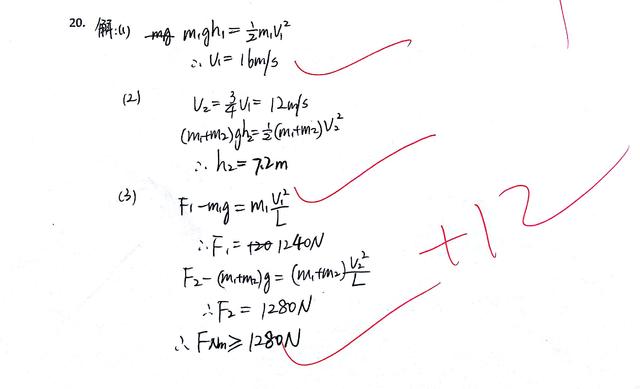 20. 解:(1) m₁gh₁=½m₁v₁²
∴ v₁=16m/s
(2) v₂=¾v₁=12m/s
(m₁+m₂)gh₂=½(m₁+m₂)v₂²
∴ h₂=7.2m
(3) F₁-m₁g=m₁v₁²/L
∴F₁=1240N
F₂-(m₁+m₂)g=(m₁+m₂)v₂²/L
∴F₂=1280N
∴ FNm≥1280N
+12